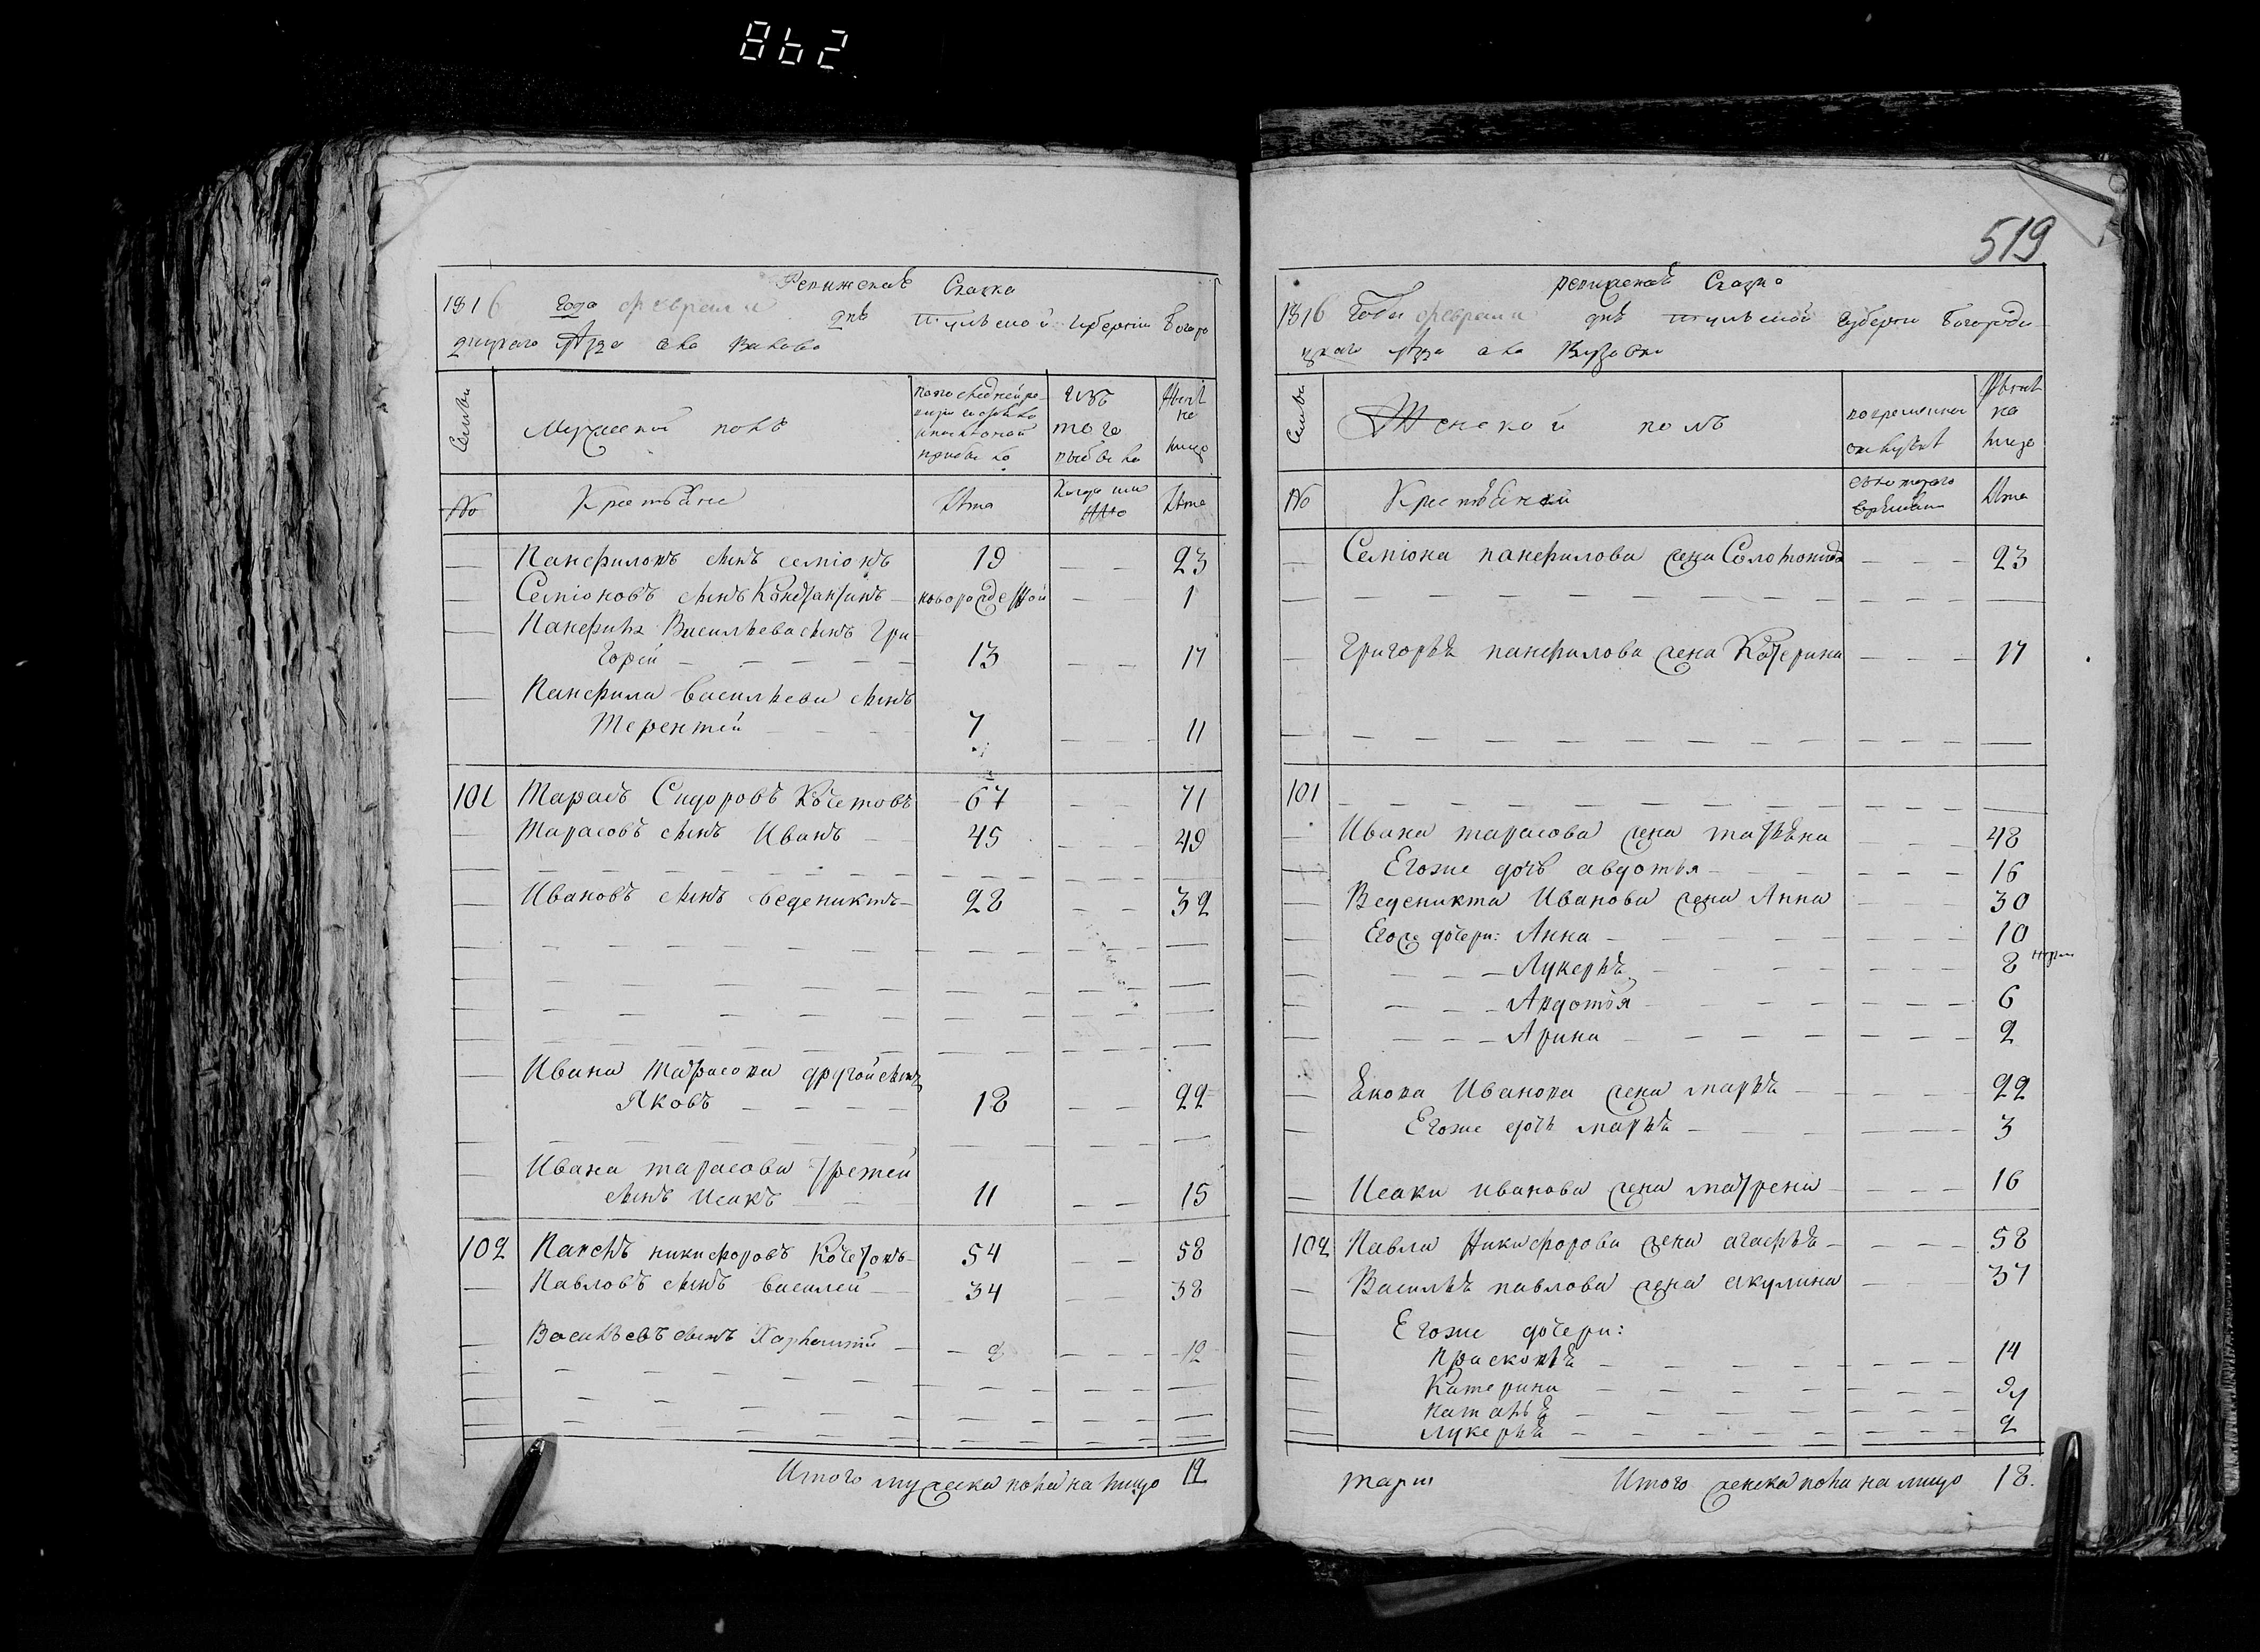 862
Ревижская Сказка
1816 года февраля дня Тульской Губернии Богоро
дицкаго уезда села
Семьи
Мужеской полъ
по последней ре-
визии состояло
и после оной
прибыло
Изъ
того
выбыло
Ныне
на
лицо
No
Крестьяне
Лета
Когда имянно
Лета
— Панфиловъ сынъ семіонъ 19 — — 23
— Семіоновъ сынъ Кондратий новорожденной — — 1
— Панфила Васильева сынъ Гри-
горей — — — — — 13 — — 17
— Панфила васильева сынъ
Терентей 7 — — 11
101 Тарасъ Сидоровъ Кочетовъ 67 — 71
— Тарасовъ сынъ Иванъ — 45 — — — 49
— Ивановъ сынъ веденикть — 28 — — 32
— Ивана Тарасова другой сынъ
Яковъ — — — — 18 — — 22
— Ивана тарасова третей
сынъ Исакъ — 11 — — 15
102 Павелъ никифоровъ Кочетовъ 54 — — 58
— Павловъ сынъ василей — 34 — — 38
— Васильевъ сынъ — — — — 12
Итого мужеска пола на лицо 12
519
ревижская Сказка
1816 Года февраля дня Тульской Губерни Богороди-
цкаго уезда села
Семьи
Женской полъ
во временной
отлучке
Ныне
на
лицо
No
Крестьянки
съ которого
времени
Лета
— Семіона панфилова жена Соломонида — — — 23
— Григорья панфилова жена Катерина — — — 17
101
— Ивана тарасова жена татьяна — — — 48
— Егоже дочь авдотья — — — 16
— Веденикта Иванова жена Анна — — 30
— Егоже дочери: Анна — — — 10
— — — — Лукерья — — — 8
— — — — Авдотья — — — 6
— — — — Арина — — — 2
— Якова Иванова жена марья — — — 22
— Егоже дочь марья — — — 3
— Исака иванова жена матрена — — — 16
102 Павла Никифорова жена агафья — — — 58
— Василья павлова жена акулина — — — 37
— Егоже дочери:
— Прасковья — — — 14
— Катерина — — —
— Наталья — — —
— Лукерья — — — 2
Итого женска пола на лицо 18.